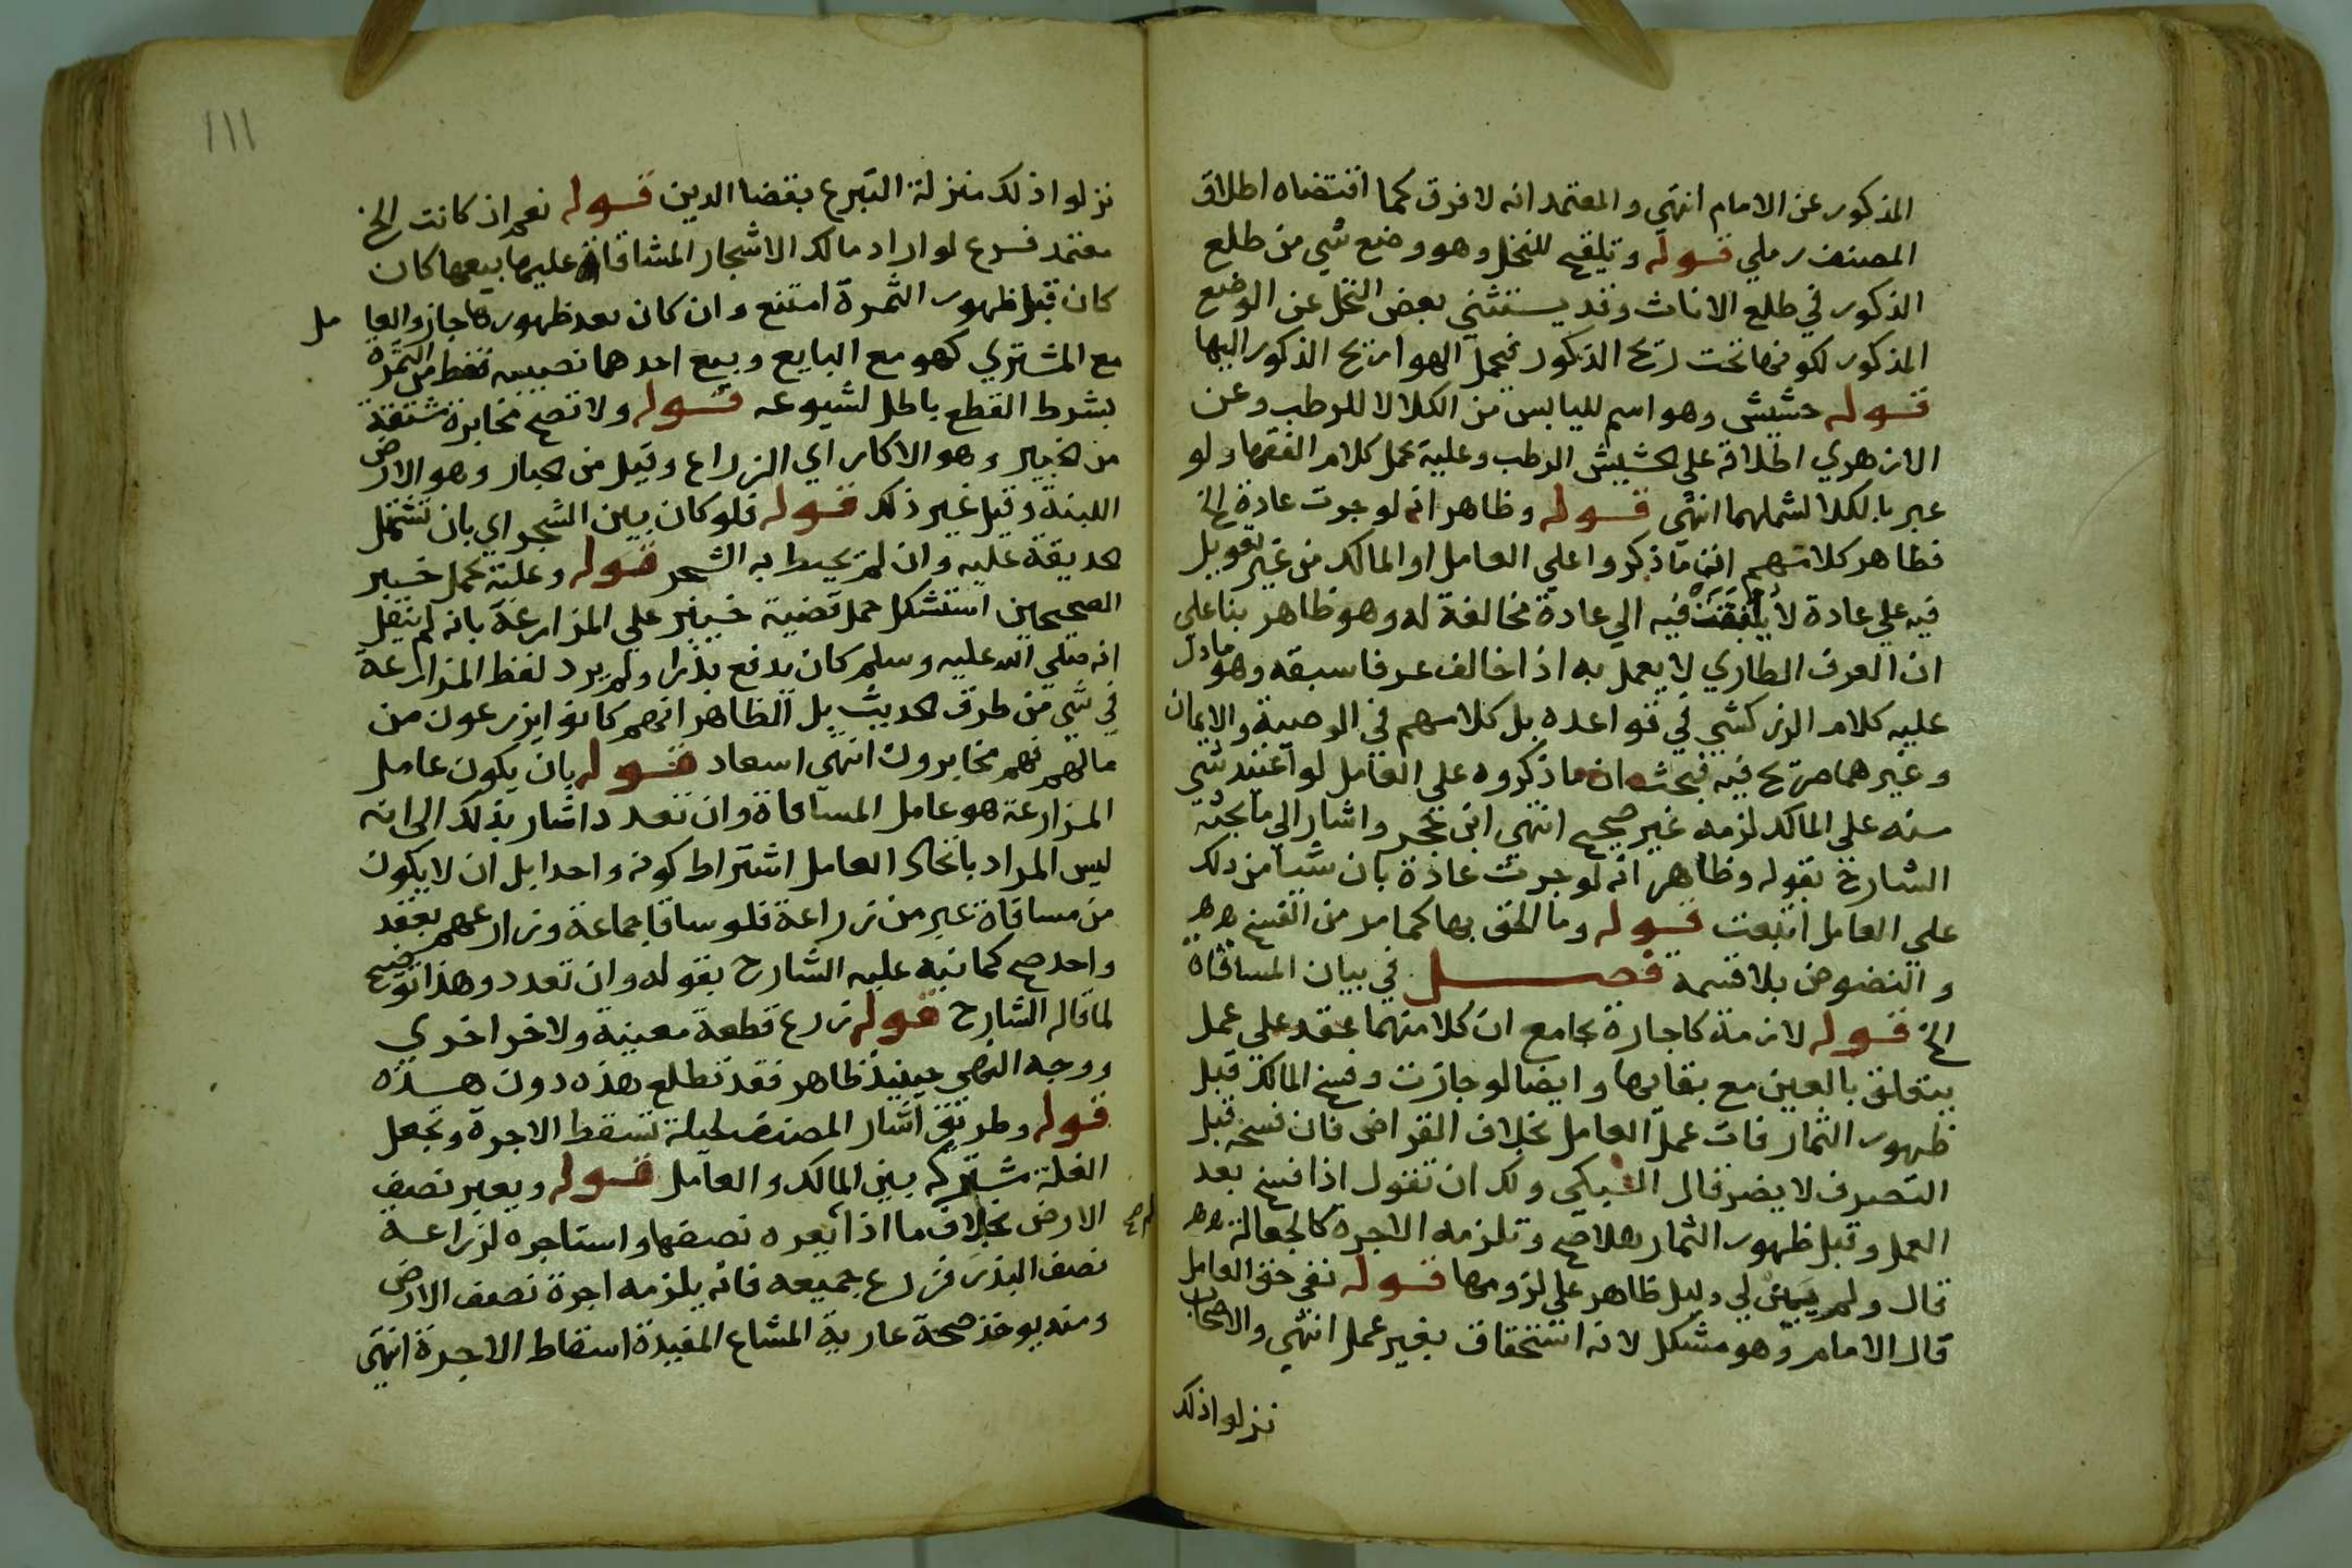 المذكور عن الامام انتهي والمعتمد انه لا فرق كما اقتضاه اطلاق
المصنف رملي قوله وتلقيح للنخل وهو وضع شي من طلع
الذكور في طلع الاناث وقد يستثني بعض النخل عن الوضع
المذكور لكونها تحت ريح الذكور فيحمل الهوا ريح الذكور اليها
قوله حشيش وهو اسم لليابس من الكلا لا للرطب وعن
الازهري اطلاقه علي الحشيش الرطب وعليه عمل كلام الفقها ولو
عبر بالكلا لشملهما انتهي قوله وظاهر انه لو جرت عادة الخ
فظاهر كلامهم ان ما ذكروا علي العامل او المالك من غير تعويل
فيه علي عادة لا يلتفت فيه الي عادة مخالفة له وهو ظاهر بنا علي
ان العرف الطاري لا يعمل به اذا خالف عرفا سبقه وهو ما دل
عليه كلام الزركشي في قواعده بل كلامهم في الوصية والايمان
وغيرهما صريح فيه فبحث ان ما ذكروه علي العامل لو اعتيد شي
منه علي المالك لزمه غير صحيح انتهي ابن حجر واشار الي ما بحثه
الشارح بقوله وظاهر انه لو جرت عادة بان شيا من ذلك
علي العامل اتبعت قوله وما الحق بها كما مر من الفسخ هه
والنضوض بلا قسمة فصل في بيان المساقاة
الخ قوله لازمة كاجارة بجامع ان كلا منهما عقد علي عمل
يتعلق بالعين مع بقايها وايضا لو جازت وفسخ المالك قبل
ظهور الثمار فات عمل العامل بخلاف القراض فان فسخه قبل
التصرف لا يضر قال السبكي ولك ان تقول اذا فسخ بعد
العمل وقبل ظهور الثمار هلا صح وتلزمه الاجرة كالجعالة هه
قال ولم يبين لي دليل ظاهر علي لزومها قوله نفي حق العامل
قال الامام وهو مشكل لانه استحقاق بغير عمل انتهي والاصحاب
نزلوا ذلك
١١١
نزلوا ذلك منزلة التبرع بقضا الدين قوله نعم ان كانت الخ
معتمد فرع لو اراد مالك الاشجار المساقاة عليها بيعها كان
كان قبل ظهور الثمرة امتنع وان كان بعد ظهورها جاز والعا مل
مع المشتري كهو مع البايع وبيع احدهما نصيبه فقط من الثمرة
بشرط القطع باطل لشيوعه قوله ولا تصح مخابرة مشتقة
من الخبير وهو الاكار اي الزراع وقيل من الخبار وهو الارض
اللينة وقيل غير ذلك قوله فلو كان بين الشجر اي بان تشتمل
الحديقة عليه وان لم يحيط به الشجر قوله وعليه يحمل خبر
الصحيحين استشكل حمل قضية خيبر علي المزارعة بانه لم ينقل
انه صلي الله عليه وسلم كان يدفع بذرا ولم يرد لفظ المزارعة
في شي من طرق الحديث بل الظاهر انهم كانوا يزرعون من
مالهم فهم مخابرون انتهي اسعاد قوله بان يكون عامل
المزارعة هو عامل المساقاة وان تعدد اشار بذلك الي انه
ليس المراد باتحاد العامل اشتراط كونه واحدا بل ان لا يكون
من مساقاة غير من زراعة فلو ساقا جماعة وزارعهم بعقد
واحد صح كما نبه عليه الشارح بقوله وان تعدد وهذا توضيح
لما قاله الشارح قوله زرع قطعة معينة ولاخر اخري
ووجه النهي حينيذ ظاهر فقد تطلع هذه دون هذه
قوله وطريق اشار المصنف لحيلة تسقط الاجرة وتجعل
الغلة مشتركة بين المالك والعامل قوله ويعير نصف
الارض بخلاف ما اذا لم يعره نصفها واستاجره لزراعة
نصف البذر فزرع جميعه فانه يلزمه اجرة نصف الارض
ومنه يوخذ صحة عارية المشاع المفيدة اسقاط الاجرة انتهي